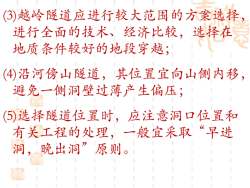 (3)越岭隧道应进行较大范围的方案选择,
进行全面的技术、经济比较,选择在
地质条件较好的地段穿越;
(4)沿河傍山隧道,其位置宜向山侧内移,
避免一侧洞壁过薄产生偏压;
(5)选择隧道位置时,应注意洞口位置和
有关工程的处理,一般宜采取“早进
洞,晚出洞”原则。